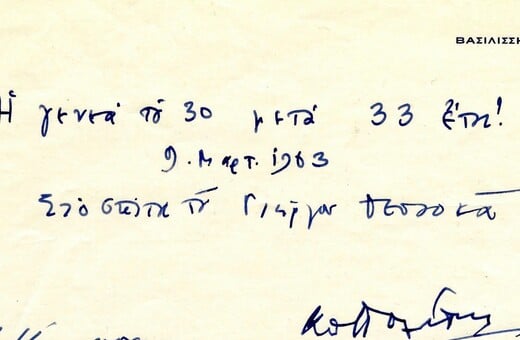 ΒΑΣΙΛΙΣΣΗ
Ἡ γενεά τοῦ 30 μετά 33 ἔτη!
9. Μαρτ. 1963
Στό σπίτι τοῦ Γιώργου Θεοτοκᾶ